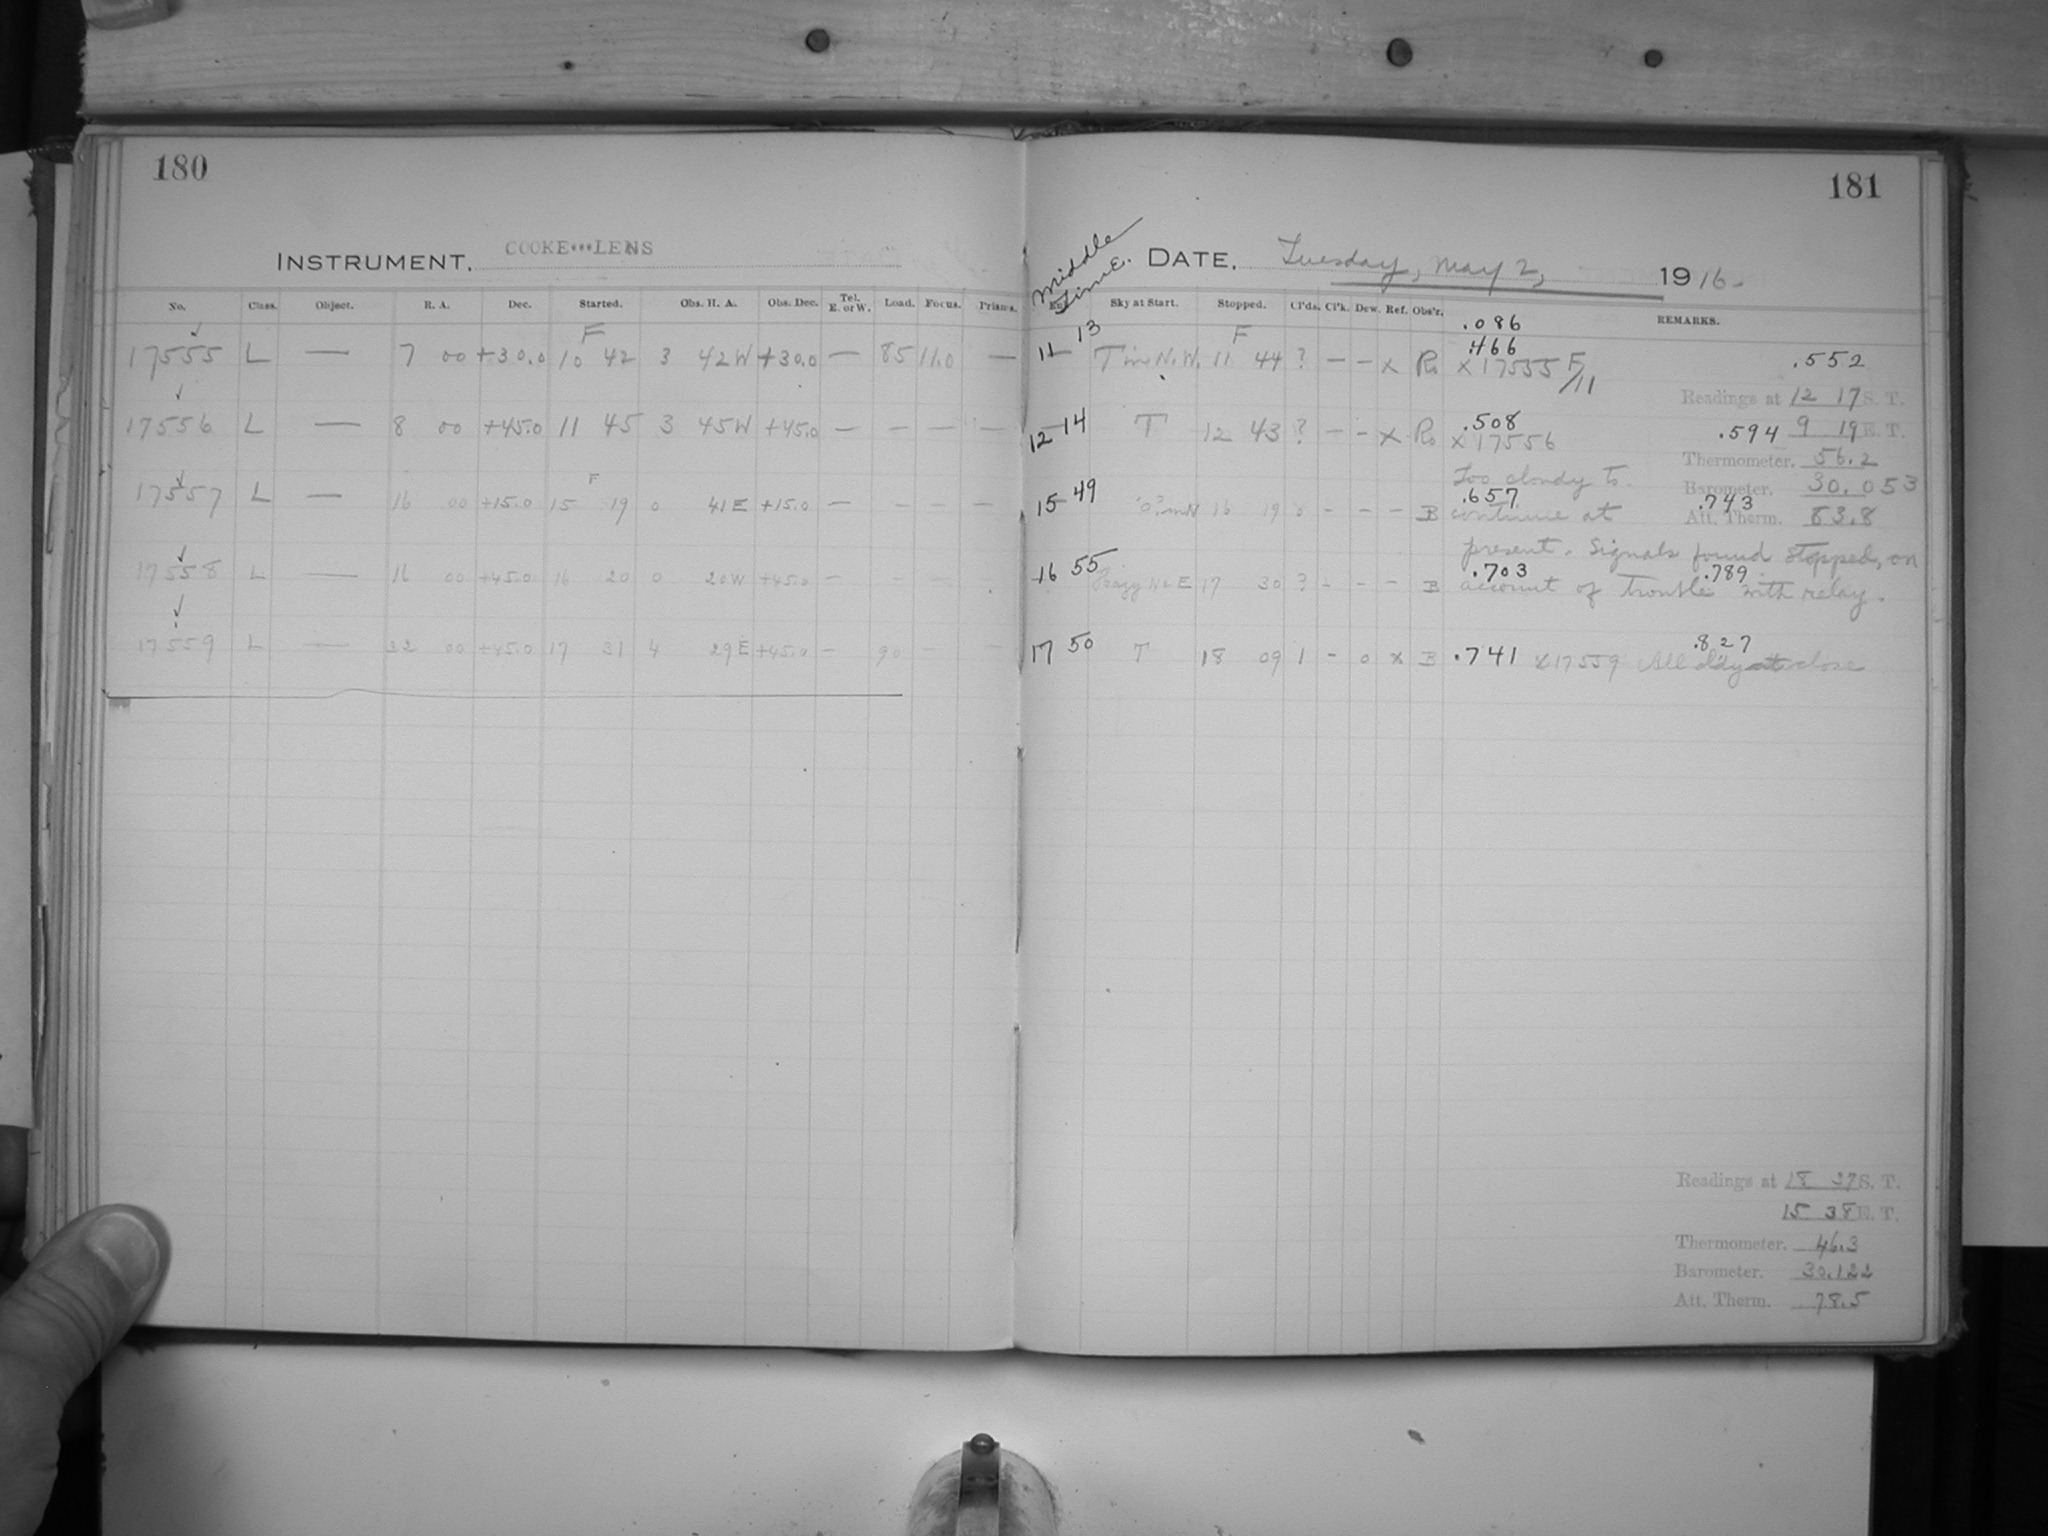 180
181
INSTRUMENT. COOKE LENS
Middle Time.
DATE. Tuesday, May 2, 1916.
No. Class. Object. R. A. Dec. Started. Obs. H. A. Obs. Dec. Tel. E. or W. Load. Focus. Prisms.
Sky at Start. Stopped. Cl'ds. Cl'k. Dew. Ref. Obs'r. REMARKS.
F F .086
.466
17555 L — 7 00 +30.0 10 42 3 42 W +30.0 — 85 11.0 — 11 13 T in N.W. 11 44 ? — — x Ro x 17555 F/11 .552
Readings at 12 17 S. T.
.508
17556 L — 8 00 +45.0 11 45 3 45 W +45.0 — — — — 12 14 T 12 43 ? — — x Ro x 17556 .594 9 19 E. T.
Thermometer. 56.2
Too cloudy to
Barometer. 30.053
F .657 .743
17557 L — 16 00 +15.0 15 19 0 41 E +15.0 — — — — 15 49 16 19 — — — B continue at Att. Therm. 83.8
present. Signals found stopped, on
.703 .789
17558 L — 16 00 +45.0 16 20 0 20 W +45.0 — — — 16 55 Hazy N & E 17 30 ? - - - B account of trouble with relay.
17559 L — 22 00 +45.0 17 31 4 29 E +45.0 — 90 — — 17 50 T 18 09 1 - 0 x B .741 x 17559 .827 All cldy at close
Readings at 18 37 S. T.
15 38 E. T.
Thermometer. 46.3
Barometer. 30.122
Att. Therm. 78.5